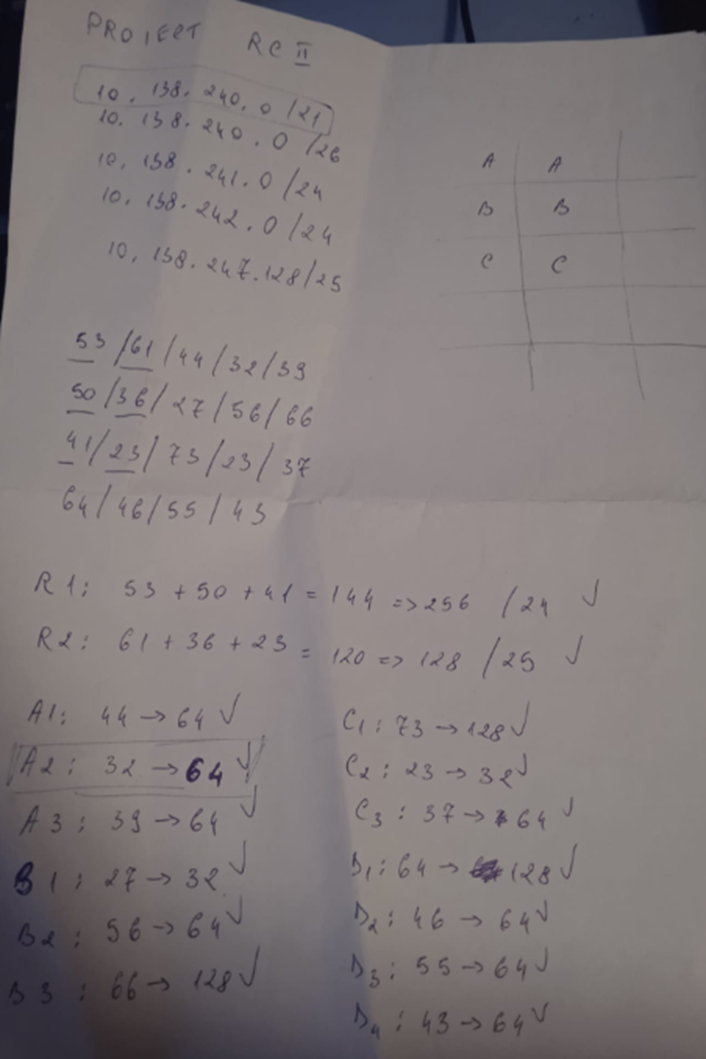 PROIECT RC II
10. 138. 240. 0 /21
10. 138. 240. 0 /26
10. 138. 241. 0 /24
10. 138. 242. 0 /24
10. 138. 247. 128/25
A A
B B
C C
53 /61 /44 /32 /39
50 /36 / 27 /56 /66
41/ 23 / 73 /23 / 37
64 / 46 / 55 / 43
R1: 53 + 50 + 41 = 144 => 256 /24 ✓
R2: 61 + 36 + 23 = 120 => 128 /25 ✓
A1: 44 → 64 ✓
A2: 32 → 64 ✓
A3: 39 → 64 ✓
B1: 27 → 32 ✓
B2: 56 → 64 ✓
B3: 66 → 128 ✓
C1: 73 → 128 ✓
C2: 23 → 32 ✓
C3: 37 → 64 ✓
D1: 64 → 128 ✓
D2: 46 → 64 ✓
D3: 55 → 64 ✓
D4: 43 → 64 ✓